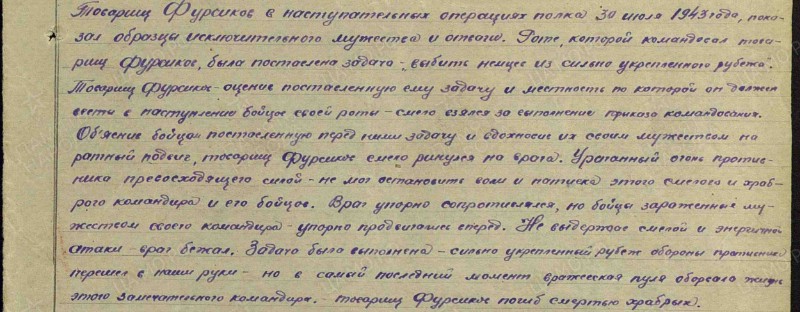 Товарищ Фурсиков в наступательных операциях полка 30 июля 1943 года, пока-
зал образцы исключительного мужества и отваги. Роте, которой командовал това-
рищ Фурсиков, была поставлена задача - „выбить немцев из сильно укрепленного рубежа“.
Товарищ Фурсиков - оценив поставленную ему задачу и местность по которой он должен
вести в наступление бойцов своей роты - смело взялся за выполнение приказа командования.
Об'яснив бойцам поставленную перед ними задачу и вдохновив их своим мужеством на
ратный подвиг, товарищ Фурсиков смело ринулся на врага. Ураганный огонь против-
ника превосходящего силой - не мог остановить воли и натиска этого смелого и храб-
рого командира и его бойцов. Враг упорно сопротивлялся, но бойцы зараженные му-
жеством своего командира - упорно продвигались вперед. Не выдержав смелой и энергичной
атаки - враг бежал. Задача была выполнена - сильно укрепленный рубеж обороны противника
перешел в наши руки - но в самый последний момент вражеская пуля оборвала жизнь
этого замечательного командира. - товарищ Фурсиков погиб смертью храбрых.